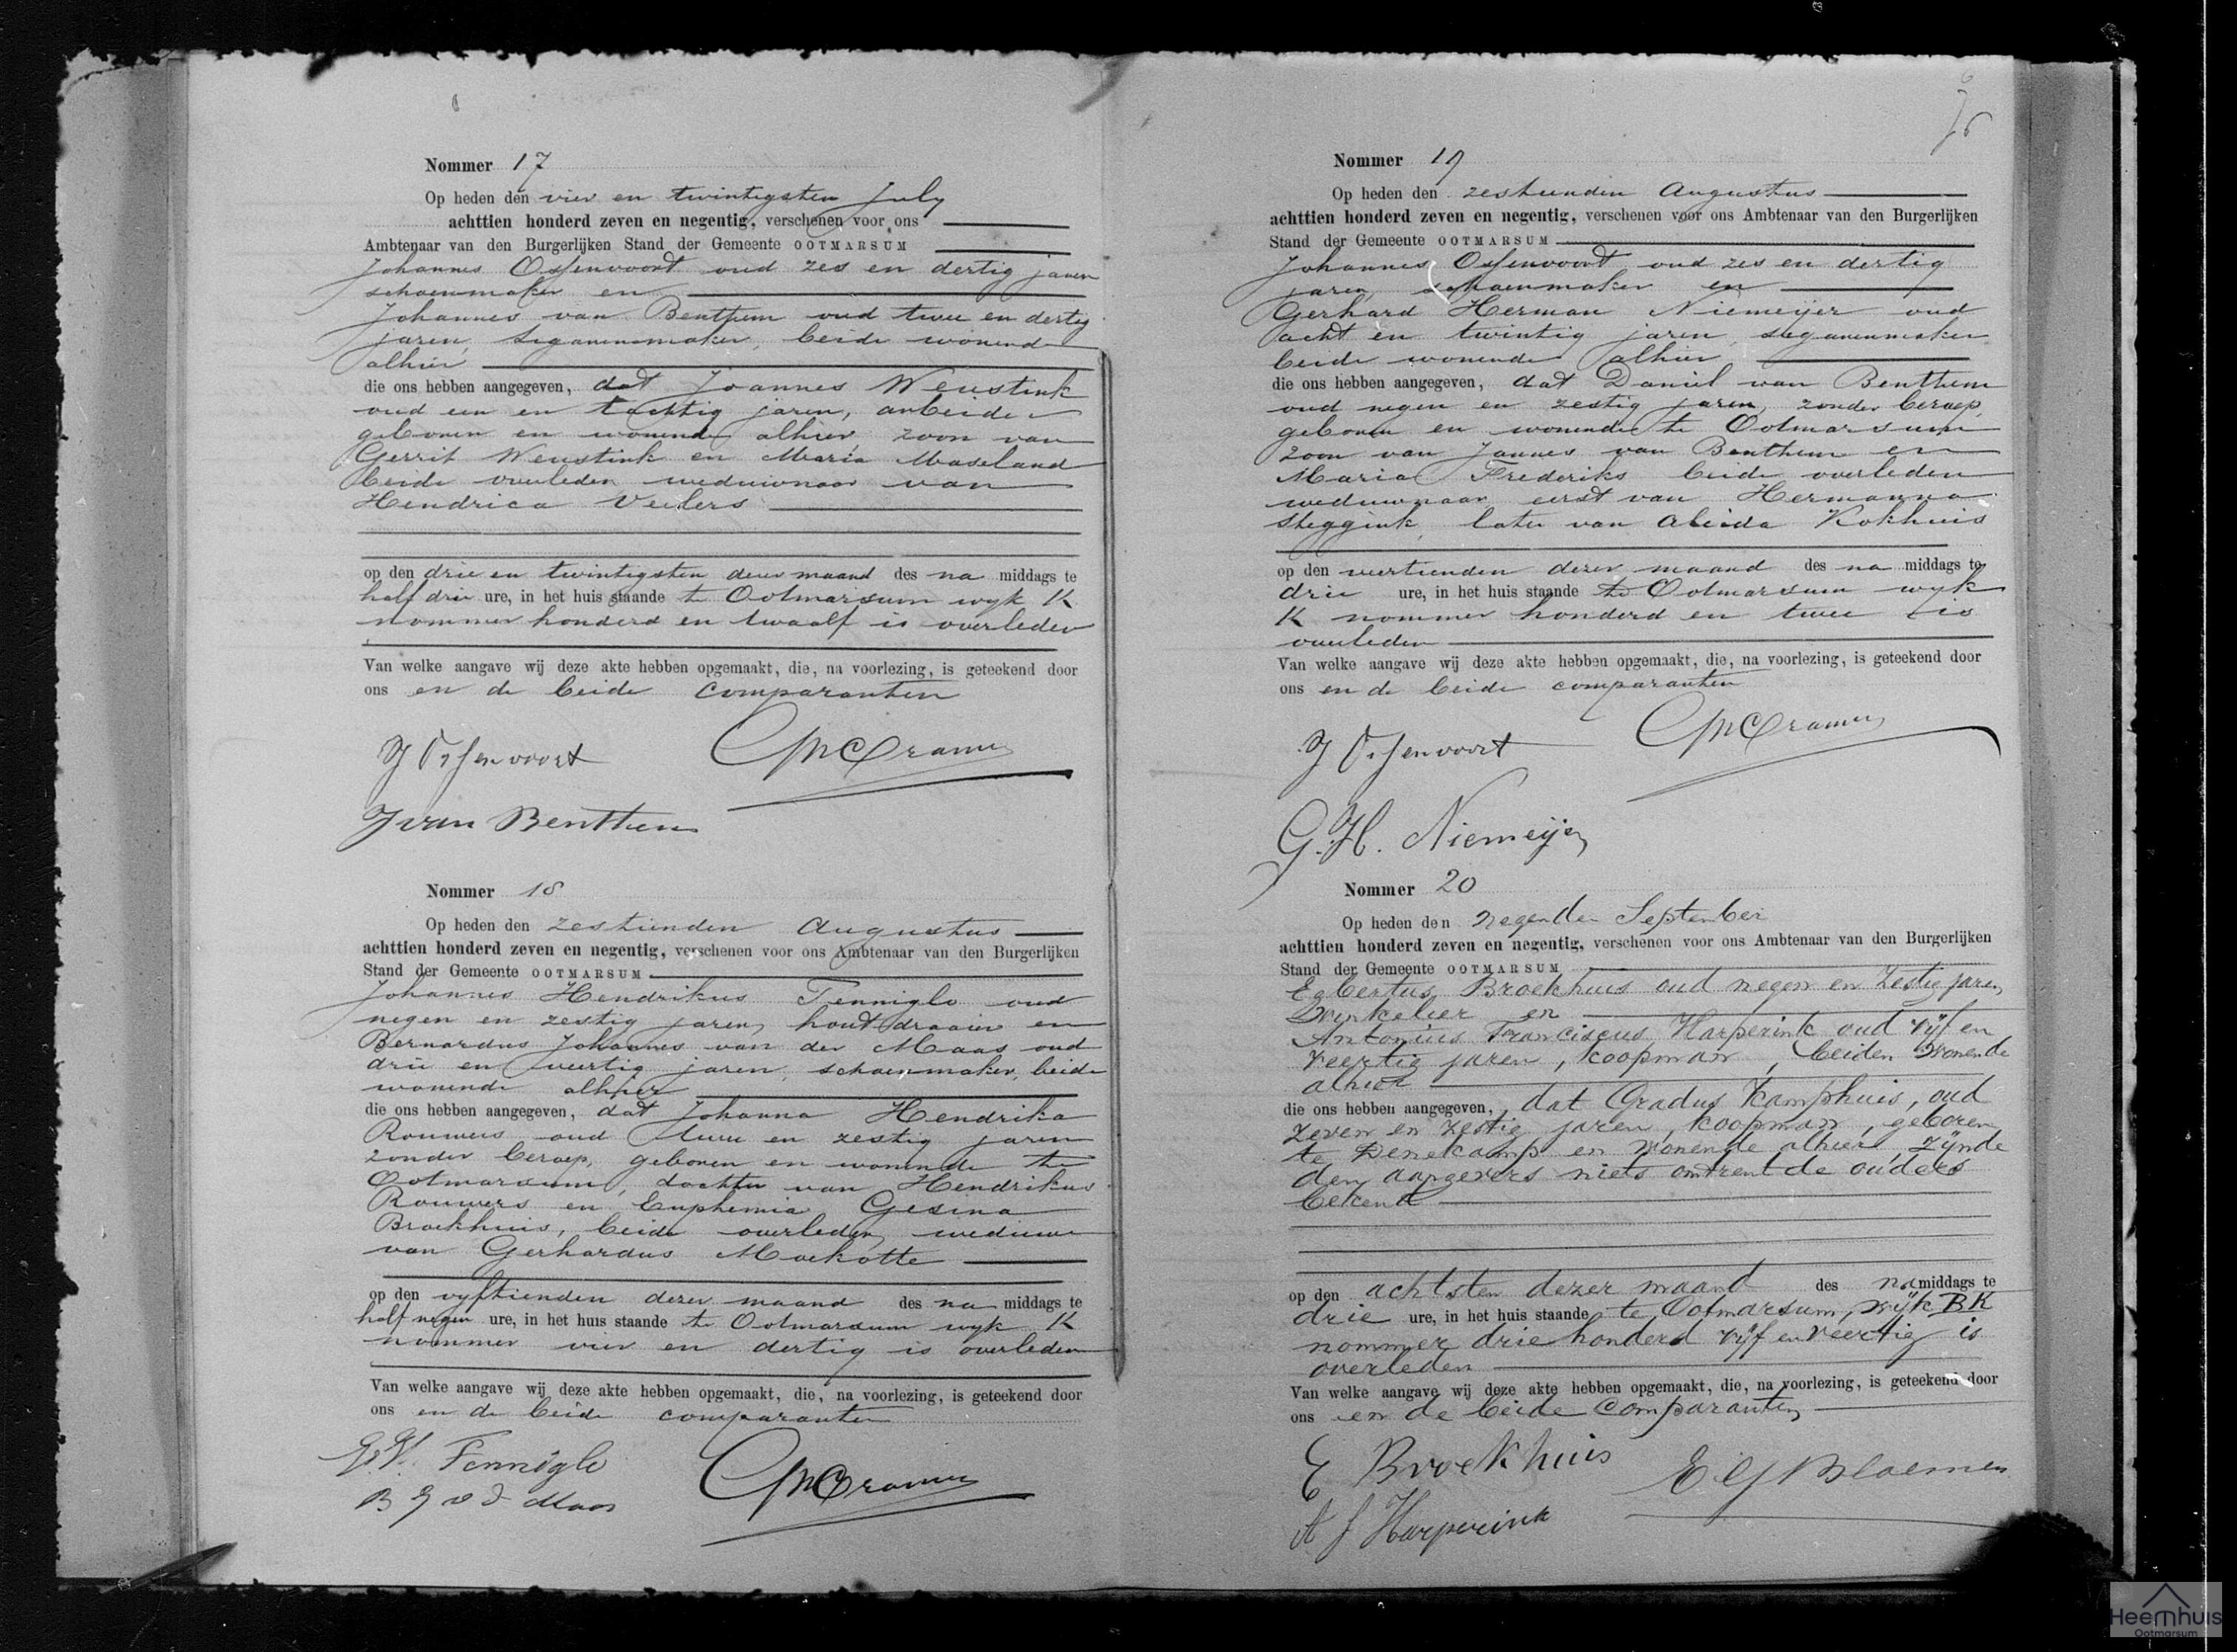 Nommer 17
Op heden den vier en twintigsten July
achttien honderd zeven en negentig, verschenen voor ons
Ambtenaar van den Burgerlijken Stand der Gemeente OOTMARSUM
Johannes Ossenvoort oud zes en dertig jaren
schoenmaker en
Johannes van Benthem oud twee en dertig
jaren, sigarenmaker, beide wonende
alhier
die ons hebben aangegeven, dat Joannes Weustink
oud een en tachtig jaren, arbeider
geboren en wonende alhier, zoon van
Gerrit Weustink en Maria Maseland
beide overleden weduwnaar van
Hendrica Veelers
op den drie en twintigsten dezer maand des na middags te
half drie ure, in het huis staande te Ootmarsum wyk K
nommer honderd en twaalf is overleden
Van welke aangave wij deze akte hebben opgemaakt, die, na voorlezing, is geteekend door
ons en de beide comparanten
J Ossenvoort
Cramer
J van Benthem
Nommer 18
Op heden den zestienden Augustus
achttien honderd zeven en negentig, verschenen voor ons Ambtenaar van den Burgerlijken
Stand der Gemeente OOTMARSUM
Johannes Hendrikus Fenniglo oud
negen en zestig jaren, houtdraaier en
Bernardus Johannes van der Maas oud
drie en veertig jaren, schoenmaker, beide
wonende alhier
die ons hebben aangegeven, dat Johanna Hendrika
Rouwers oud twee en zestig jaren
zonder beroep, geboren en wonende te
Ootmarsum, dochter van Hendrikus
Rouwers en Euphemia Gesina
Broekhuis, beide overleden, weduwe
van Gerhardus Moekotte
op den vyftienden dezer maand des na middags te
half negen ure, in het huis staande te Ootmarsum wyk K
nommer vier en dertig is overleden
Van welke aangave wij deze akte hebben opgemaakt, die, na voorlezing, is geteekend door
ons en de beide comparanten
Fenniglo
B J v d Maas
Cramer
Nommer 19
Op heden den zestienden Augustus
achttien honderd zeven en negentig, verschenen voor ons Ambtenaar van den Burgerlijken
Stand der Gemeente OOTMARSUM
Johannes Ossenvoort oud zes en dertig
jaren, schoenmaker en
Gerhard Herman Niemeijer oud
acht en twintig jaren, sigarenmaker
beide wonende alhier
die ons hebben aangegeven, dat Daniel van Benthem
oud negen en zestig jaren, zonder beroep,
geboren en wonende te Ootmarsum
zoon van Jannes van Benthem en
Maria Frederiks beide overleden
weduwnaar eerst van Hermanna
Steggink, later van Aleida Kokhuis
op den veertienden dezer maand des na middags te
drie ure, in het huis staande te Ootmarsum wyk
K nommer honderd en twee is
overleden
Van welke aangave wij deze akte hebben opgemaakt, die, na voorlezing, is geteekend door
ons en de beide comparanten
J Ossenvoort
Cramer
G. H. Niemeijer
Nommer 20
Op heden den negenden September
achttien honderd zeven en negentig, verschenen voor ons Ambtenaar van den Burgerlijken
Stand der Gemeente OOTMARSUM
Egbertus Broekhuis oud negen en zestig jaren,
winkelier en
Antonius Franciscus Harperink oud vijf en
veertig jaren, koopman, beiden wonende
alhier
die ons hebben aangegeven, dat Gradus Kamphuis, oud
zeven en zestig jaren, koopman, geboren
te Denekamp en wonende alhier, zijnde
den aangevers niets omtrent de ouders
bekend
op den achtsten dezer maand des na middags te
drie ure, in het huis staande te Ootmarsum, wijk B K
nommer drie honderd vijf en veertig is
overleden
Van welke aangave wij deze akte hebben opgemaakt, die, na voorlezing, is geteekend door
ons en de beide comparanten
E Broekhuis
Bloemen
A f Harperink
Heemhuis
Ootmarsum